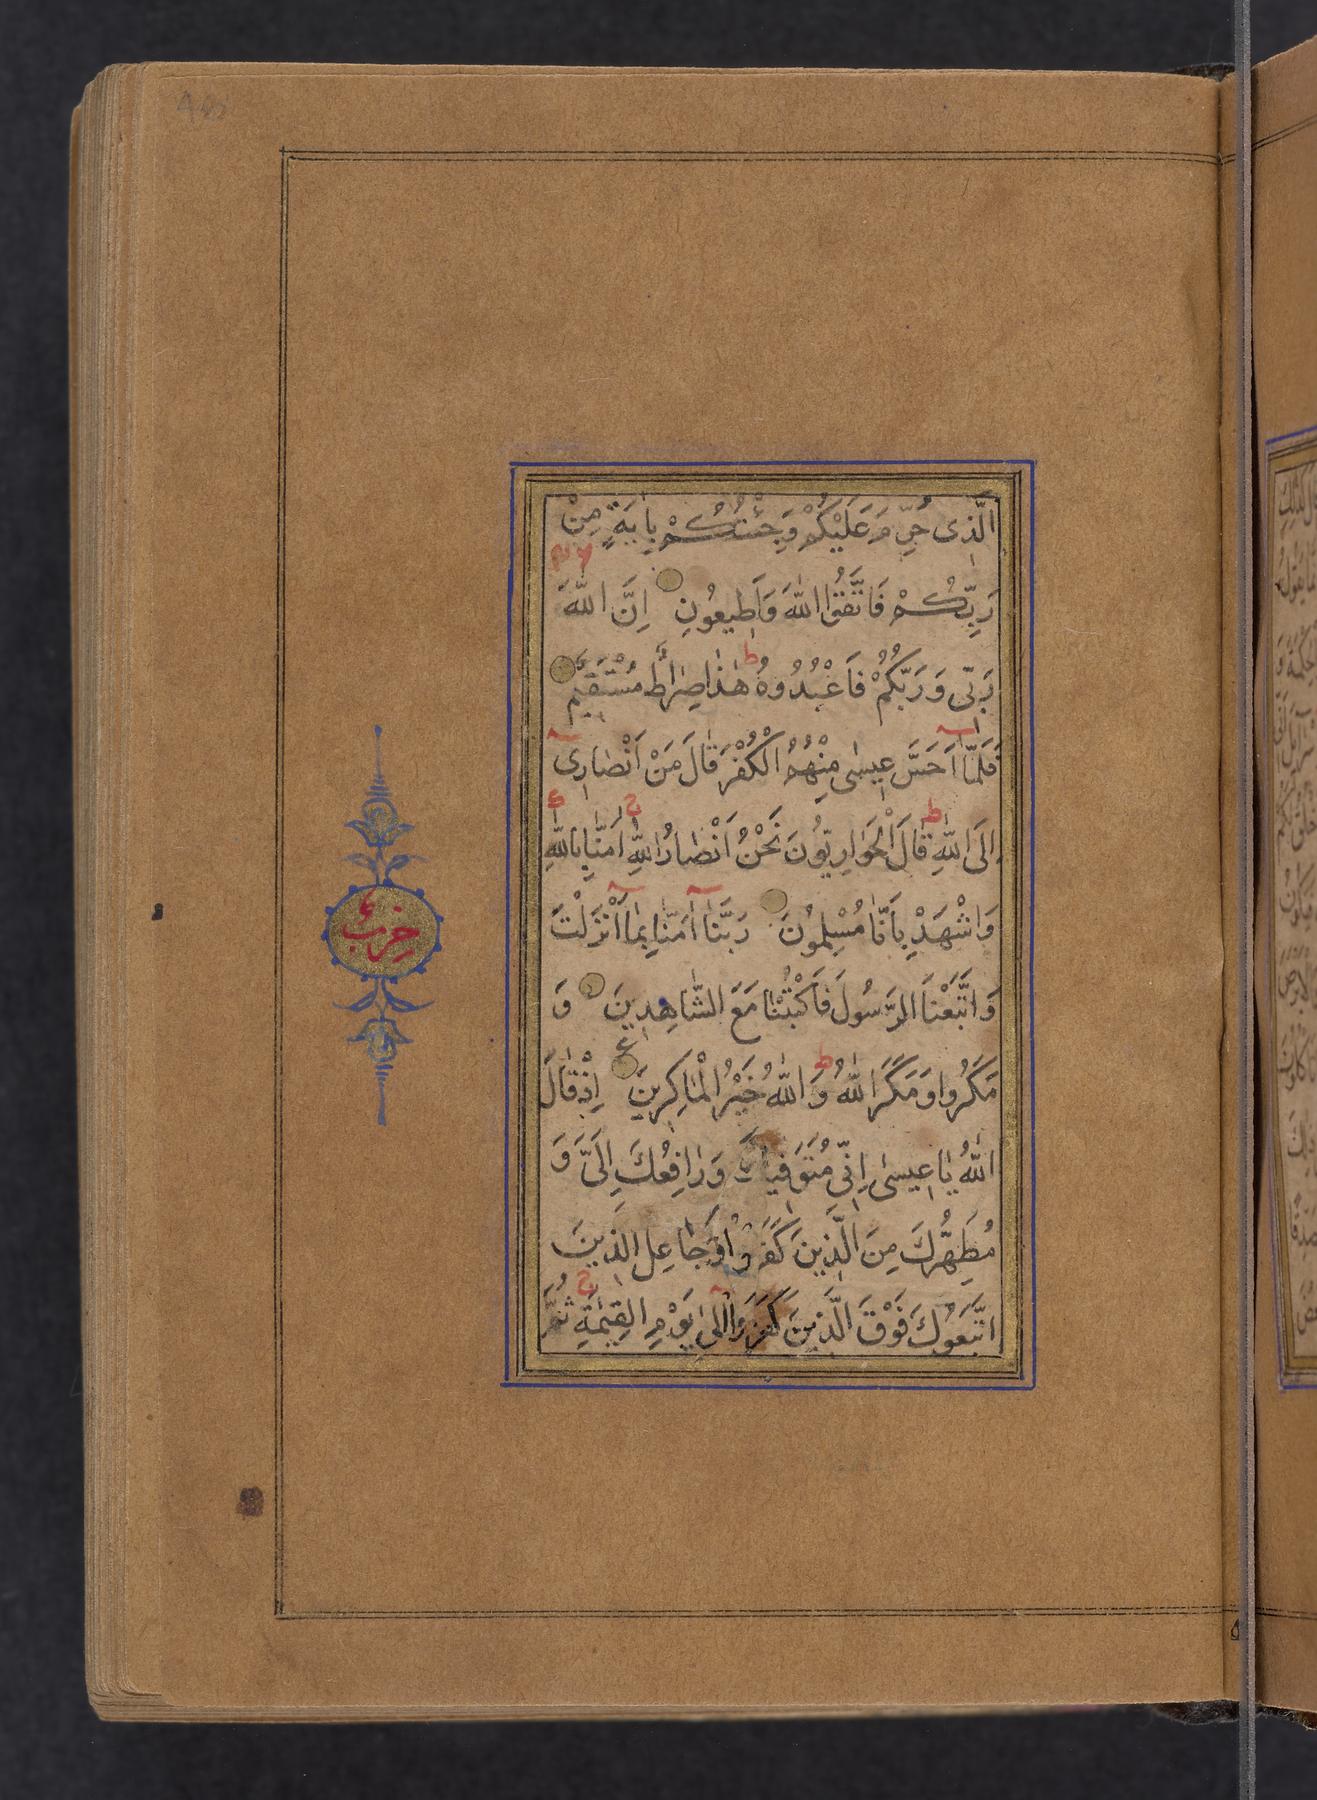 الَّذِى حُرِّمَ عَلَيْكُمْ وَجِئْتُكُمْ بِاٰيَةٍ مِنْ
رَبِّكُمْ فَاتَّقُوا اللّٰهَ وَاَطِيعُونِ اِنَّ اللّٰهَ
رَبِّى وَرَبُّكُمْ فَاعْبُدُوهُ ط هٰذَا صِرَاطٌ مُسْتَقِيمٌ
فَلَمَّآ اَحَسَّ عِيسٰى مِنْهُمُ الْكُفْرَ قَالَ مَنْ اَنْصَارِىٓ
اِلَى اللّٰهِ ط قَالَ الْحَوَارِيُّونَ نَحْنُ اَنْصَارُ اللّٰهِ ج اٰمَنَّا بِاللّٰهِ ج
وَاشْهَدْ بِاَنَّا مُسْلِمُونَ رَبَّنَآ اٰمَنَّا بِمَآ اَنْزَلْتَ
وَاتَّبَعْنَا الرَّسُولَ فَاكْتُبْنَا مَعَ الشَّاهِدِينَ وَ
مَكَرُوا وَمَكَرَ اللّٰهُ ط وَاللّٰهُ خَيْرُ الْمَاكِرِينَ ع اِذْ قَالَ
اللّٰهُ يَا عِيسٰى اِنِّى مُتَوَفِّيكَ وَرَافِعُكَ اِلَىَّ وَ
مُطَهِّرُكَ مِنَ الَّذِينَ كَفَرُوا وَجَاعِلُ الَّذِينَ
اتَّبَعُوكَ فَوْقَ الَّذِينَ كَفَرُوا اِلٰى يَوْمِ الْقِيٰمَةِ ج ثُمَّ
حزب